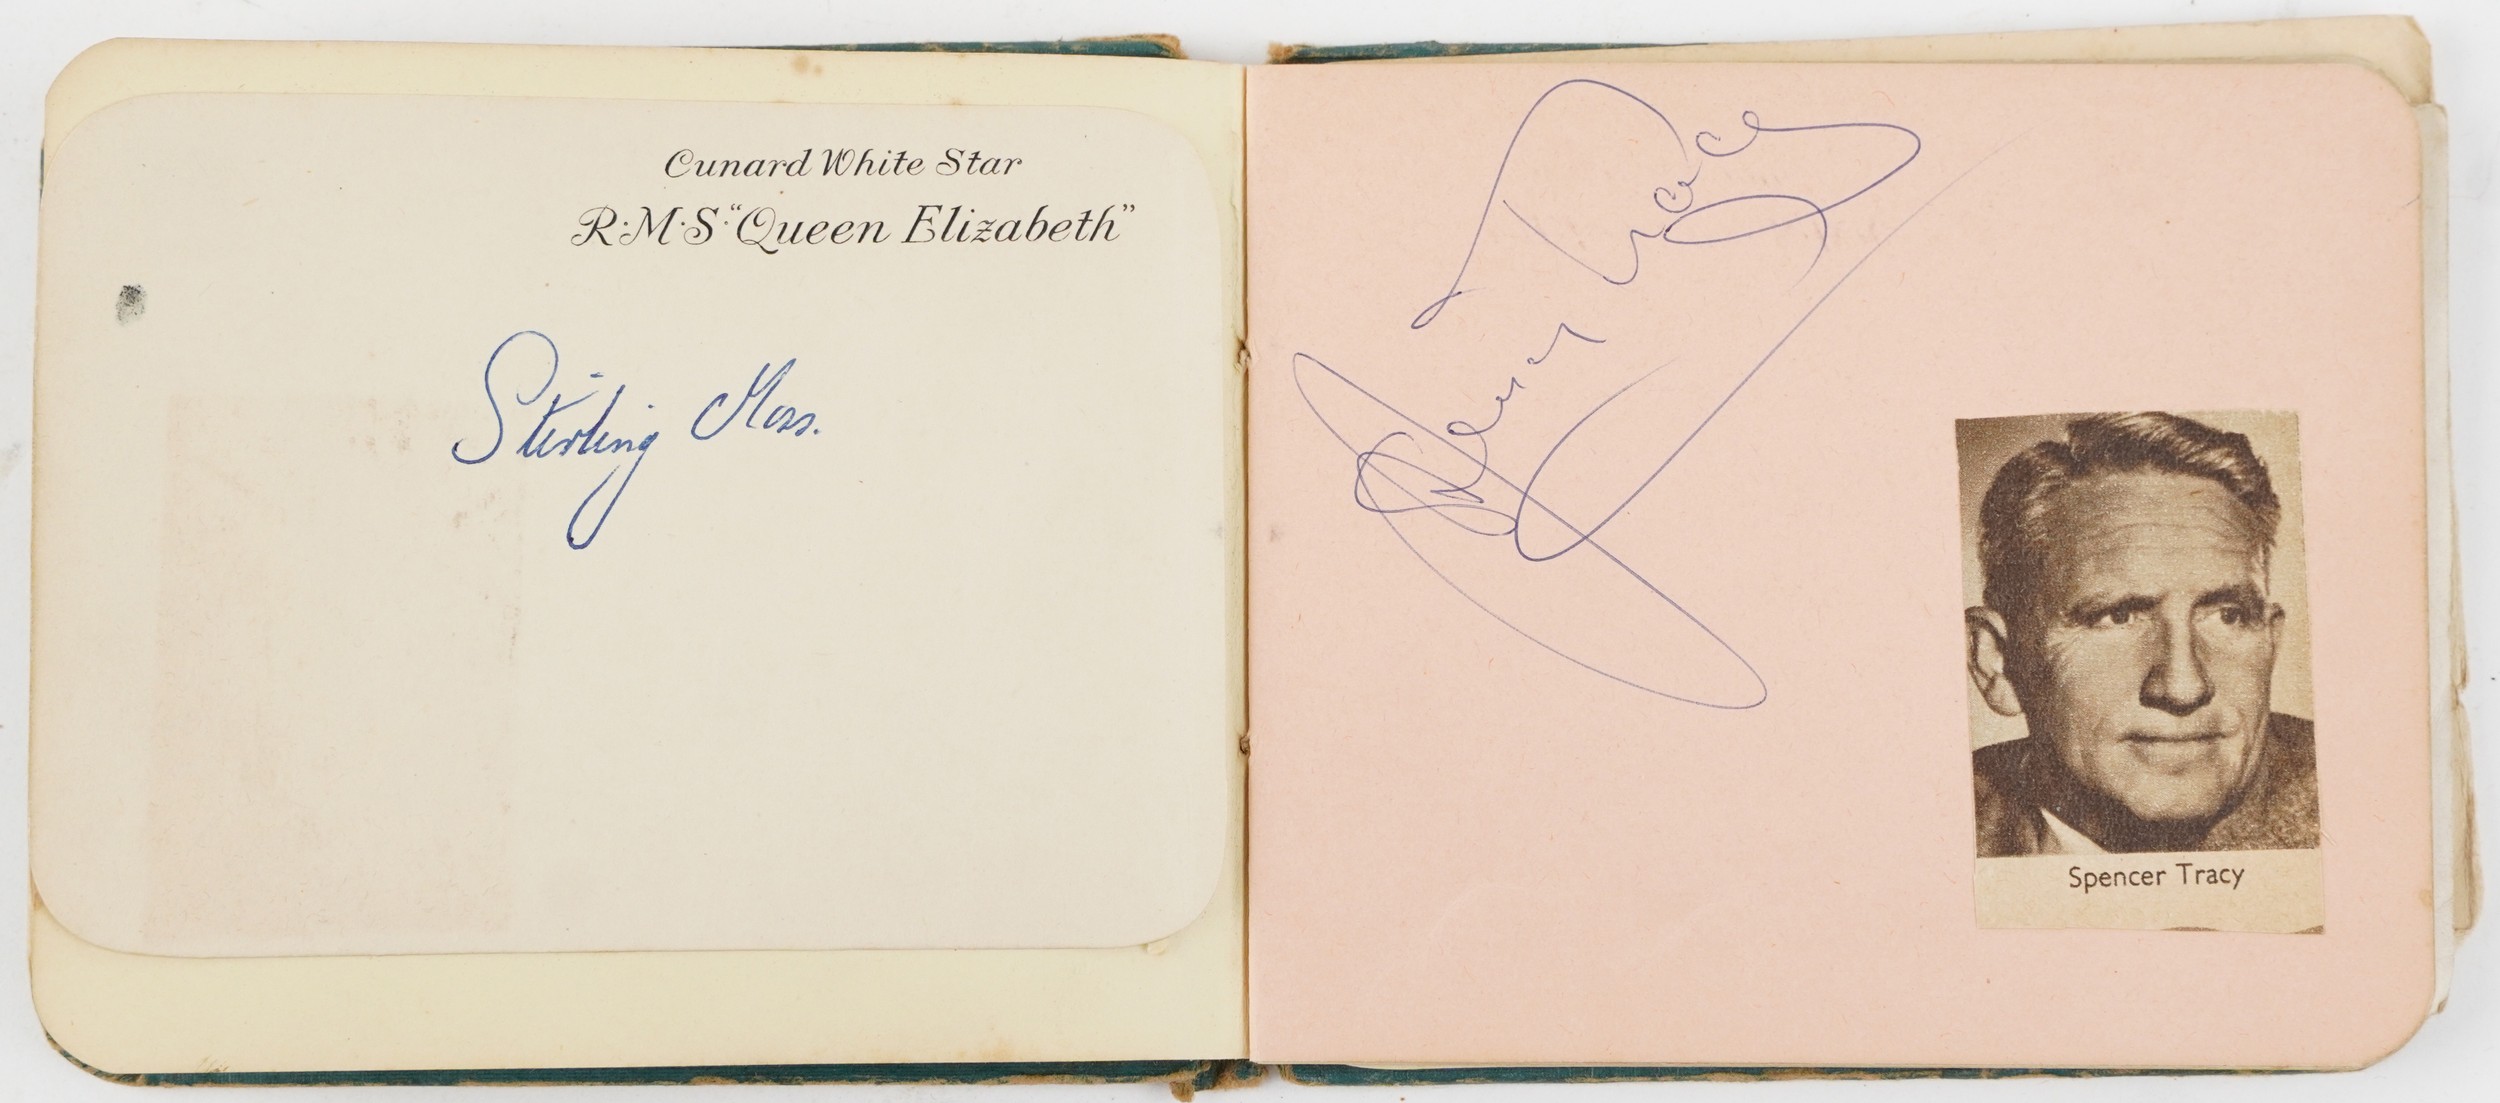 Cunard White Star
R·M·S·“Queen Elizabeth”
Stirling Moss.
Spencer Tracy
Spencer Tracy